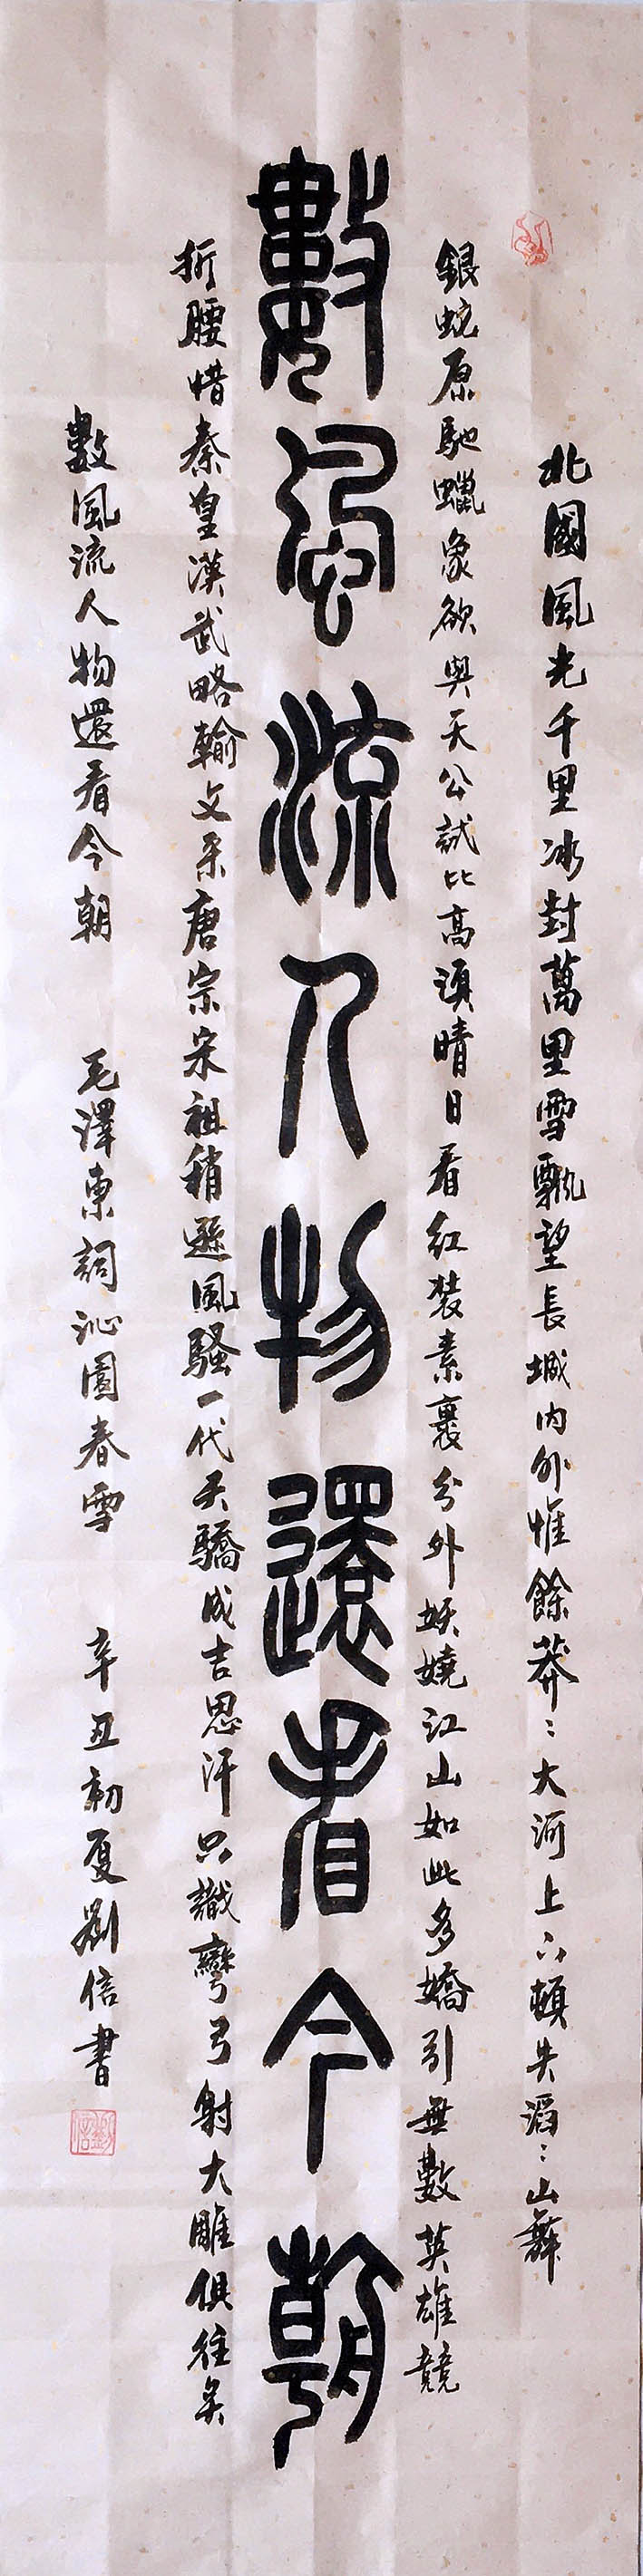 北國風光千里冰封萬里雪飄望長城內外惟餘莽〻大河上下頓失滔〻山舞
銀蛇原馳蠟象欲與天公試比高須晴日看紅裝素裹分外妖嬈江山如此多嬌引無數英雄競
數風流人物還看今朝
折腰惜秦皇漢武略輸文采唐宗宋祖稍遜風騷一代天驕成吉思汗只識彎弓射大雕俱往矣
數風流人物還看今朝 毛澤東詞沁園春雪 辛丑初夏劉信書
劉信